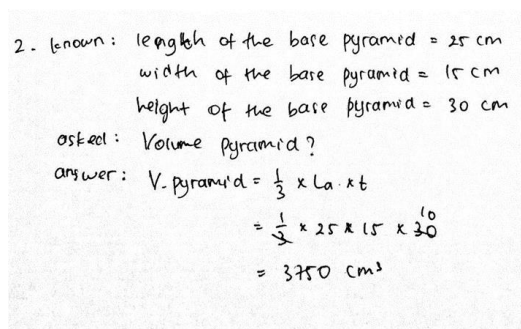 2. known : length of the base pyramid = 25 cm
width of the base pyramid = 15 cm
height of the base pyramid = 30 cm
asked : Volume pyramid?
answer : V. pyramid = 1/3 x La. x t
= 1/3 x 25 x 15 x 30 10
= 3750 cm³